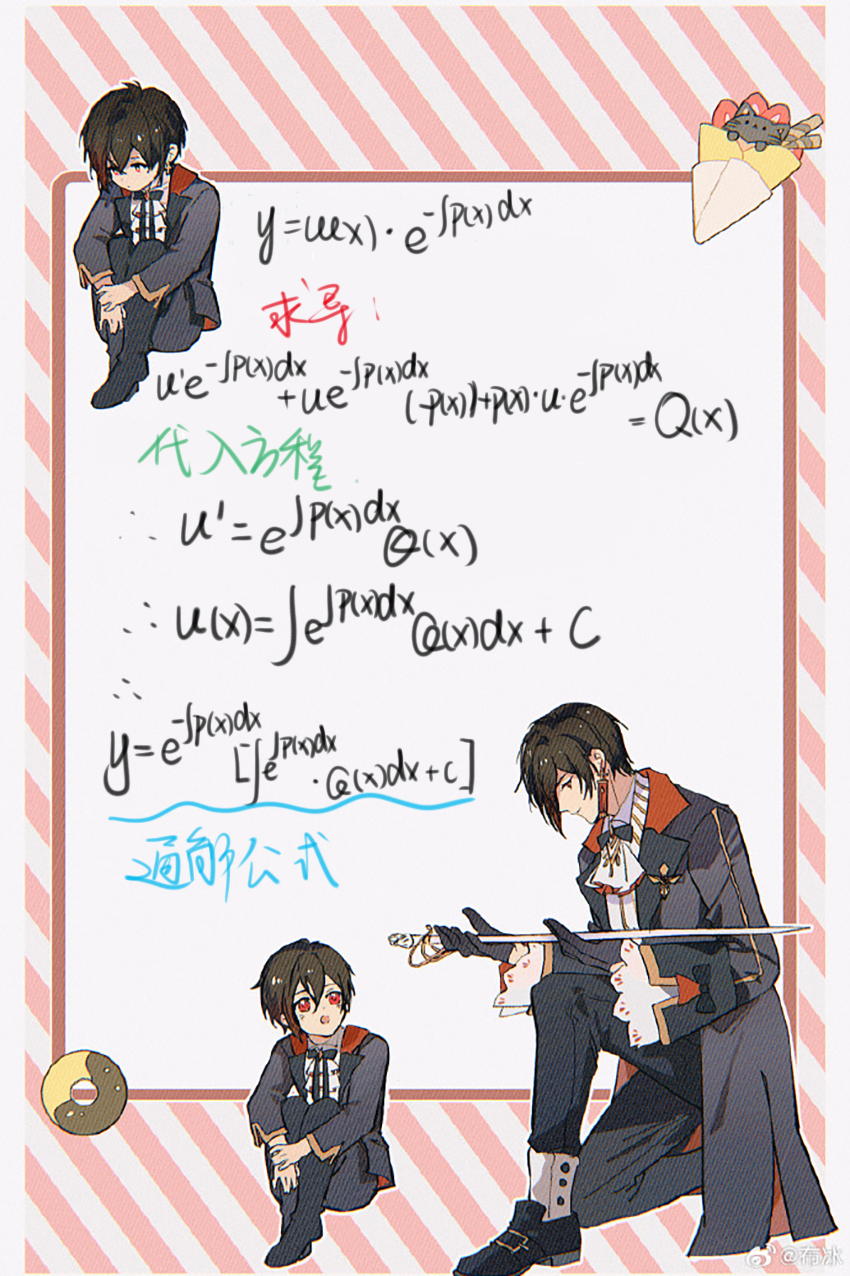 y=u(x)·e^{-∫p(x)dx}
求导:
u'e^{-∫p(x)dx}+ue^{-∫p(x)dx}(-p(x))+p(x)·u·e^{-∫p(x)dx}=Q(x)
代入方程
∴ u'=e^{∫p(x)dx}Q(x)
∴ u(x)=∫e^{∫p(x)dx}Q(x)dx+C
∴
y=e^{-∫p(x)dx}[∫e^{∫p(x)dx}·Q(x)dx+C]
通解公式
@布冰